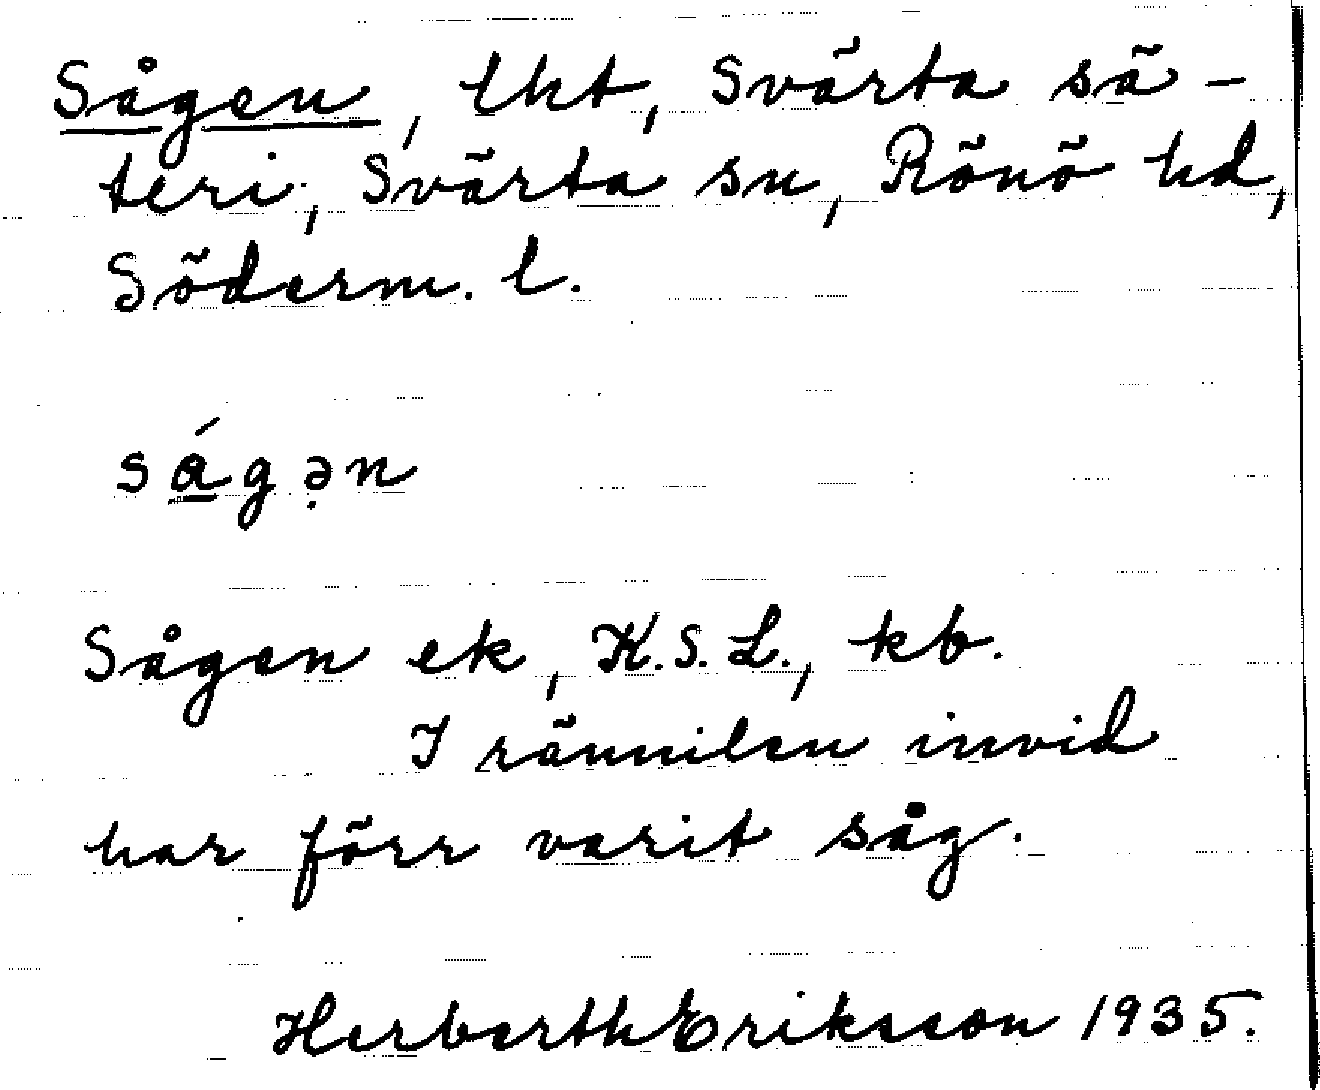 Sågen, lht, Svärta sä-
teri, Svärta sn, Rönö hd,
Söderm. l.
ságə̣n
Sågen ek, K.S.L., kb.
I rännilen invid
har förr varit såg.
Herberth Eriksson 1935.